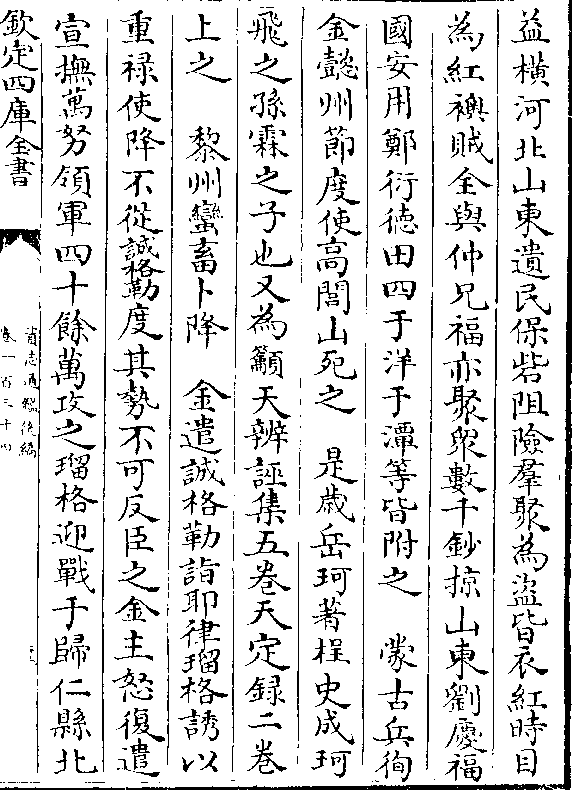 益橫河北山東遺民保砦阻險羣聚為盜皆衣紅時目
為紅襖賊全與仲兄福亦聚眾數千鈔掠山東劉慶福
國安用鄭衍德田四于洋于潭等皆附之　蒙古兵徇
金懿州節度使高閭山死之　是歲岳珂著桯史成珂
飛之孫霖之子也又為籲天辨誣集五卷天定録二卷
上之　黎州蠻畜卜降　金遣誠格勒詣耶律瑠格誘以
重禄使降不從誠格勒度其勢不可反臣之金主怒復遣
宣撫萬努領軍四十餘萬攻之瑠格迎戰于歸仁縣北
欽定四庫全書
資治通鑑後編
卷一百三十四